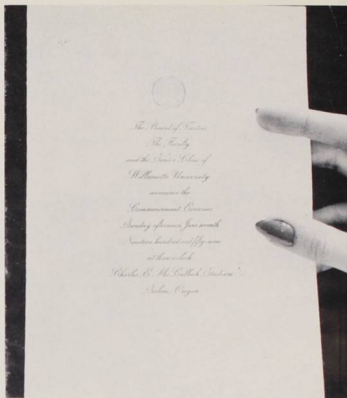 The Board of Trustees
The Faculty
and the Senior Class of
Willamette University
announce the
Commencement Exercises
Sunday afternoon, June seventh
Nineteen hundred and fifty-nine
at three o'clock
Charles E. McCulloch Stadium
Salem, Oregon